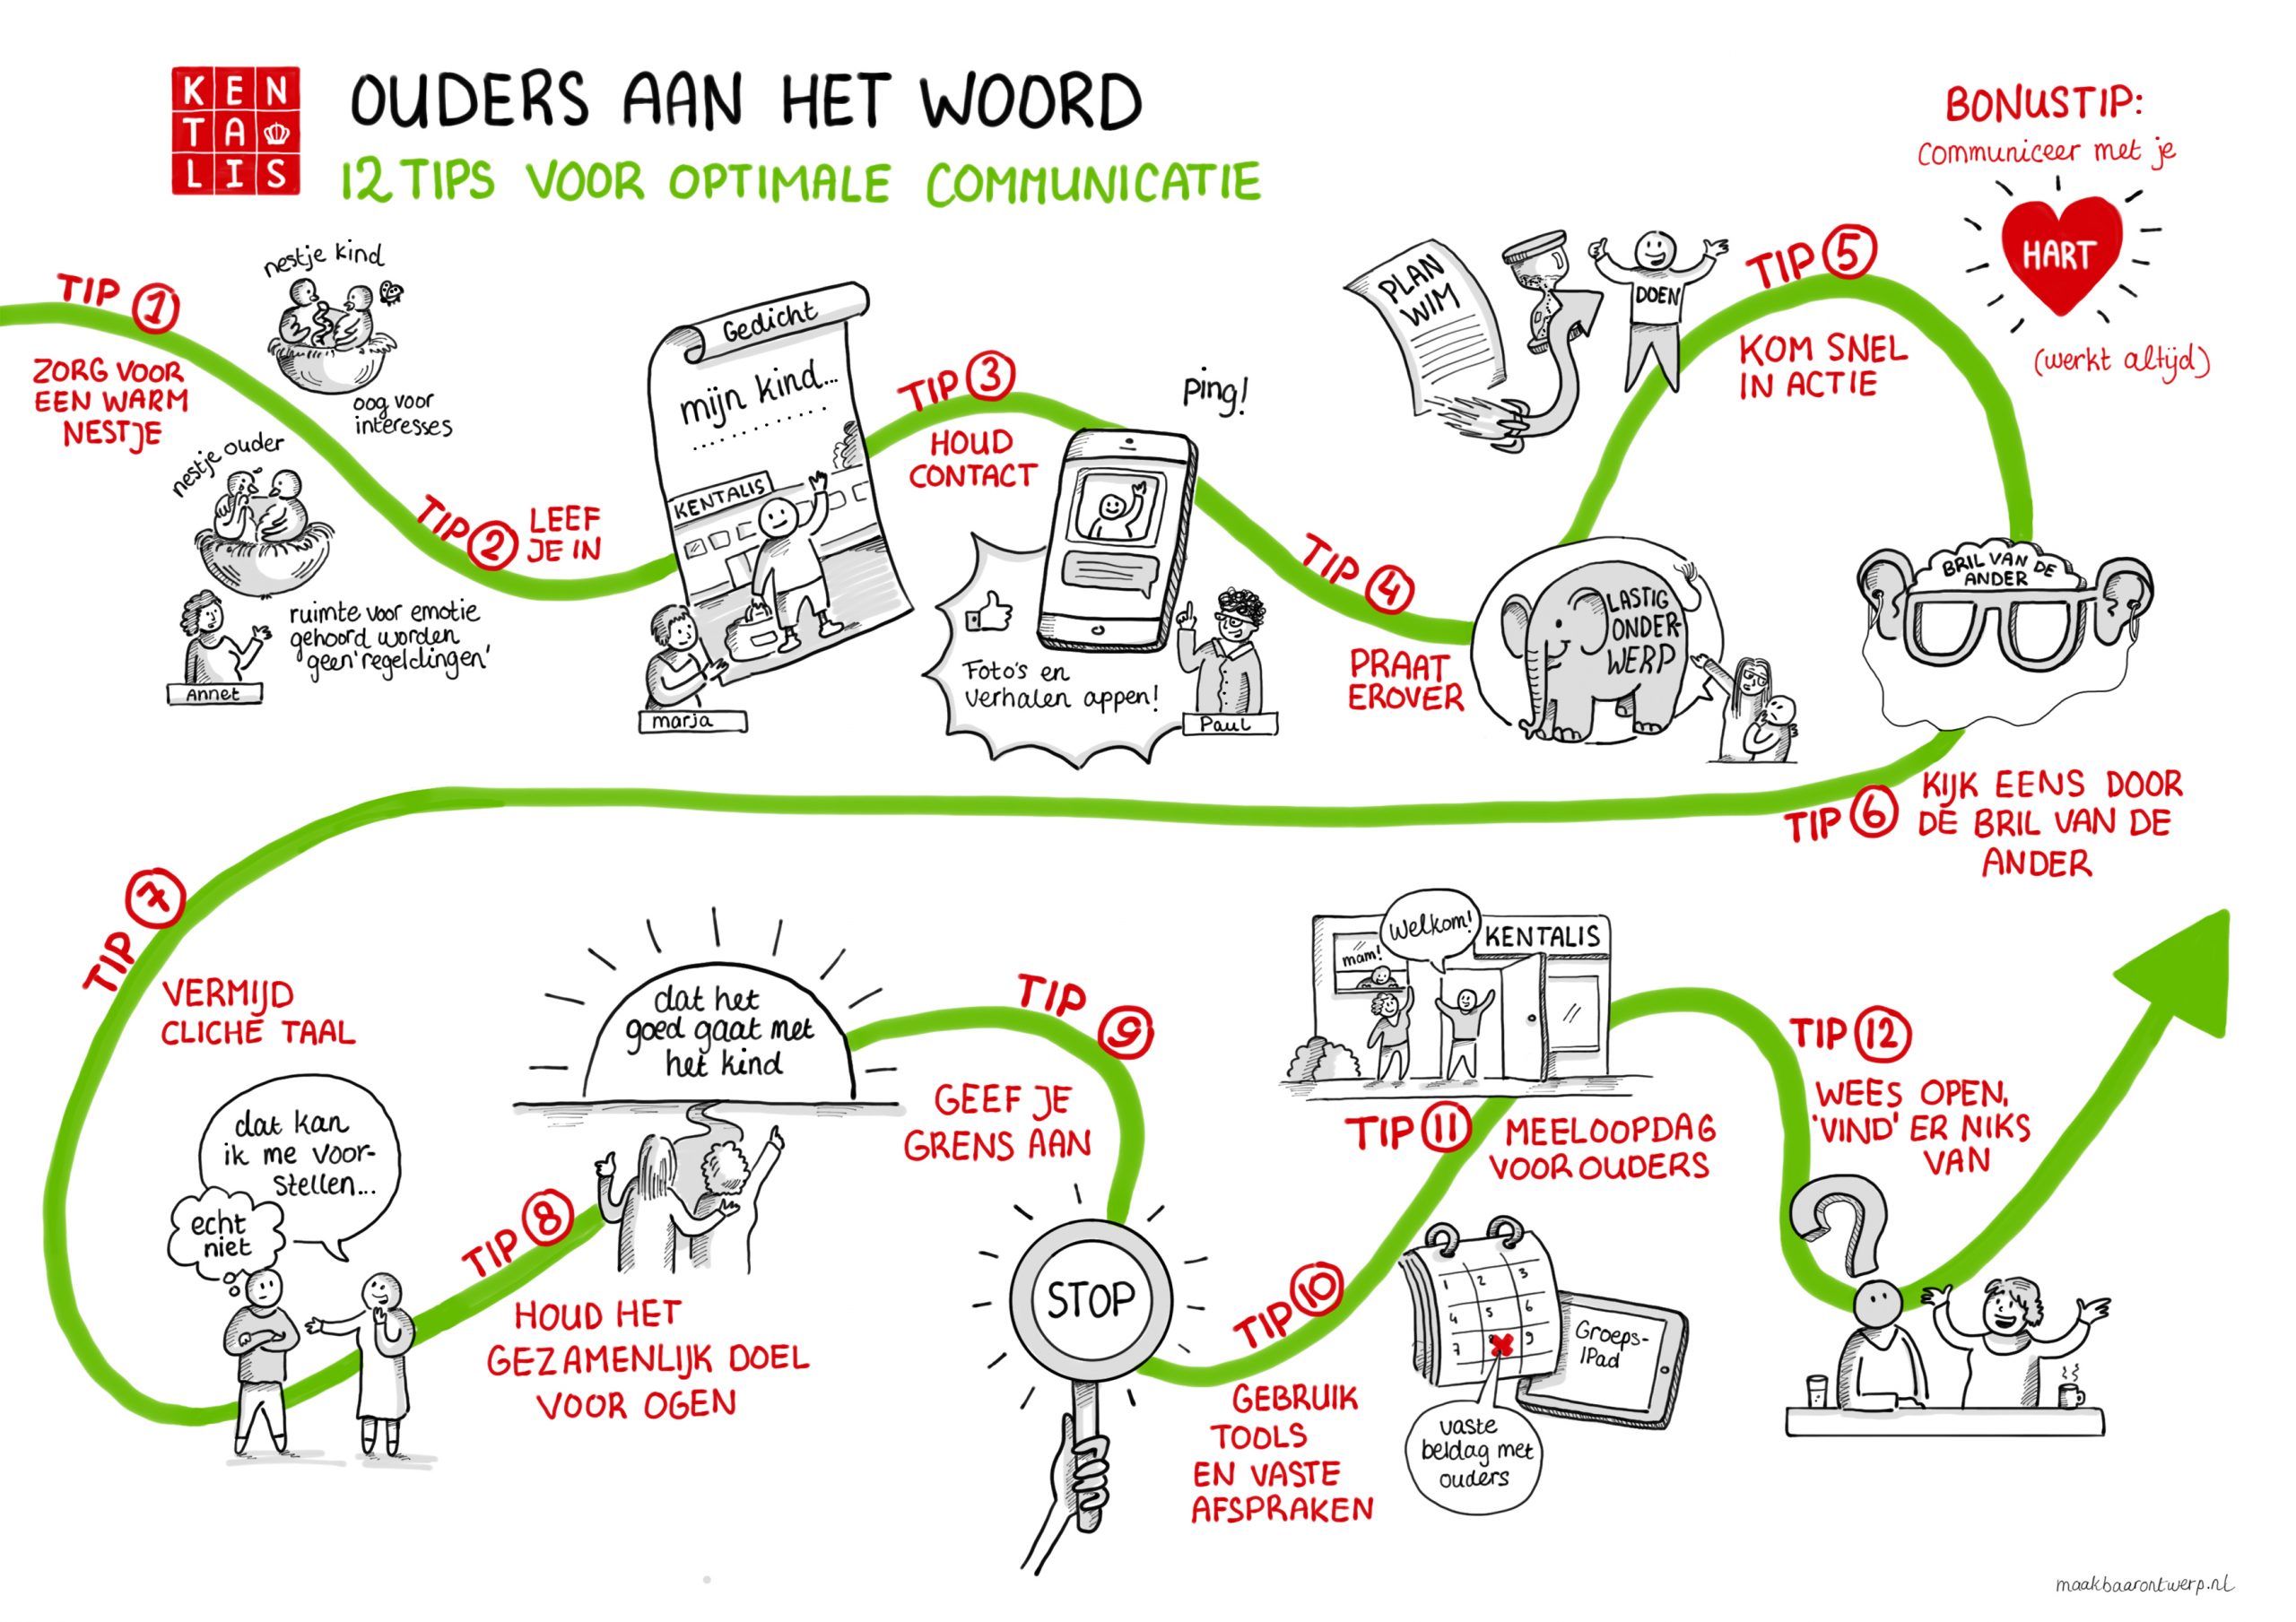 KEN
TA
LIS
OUDERS AAN HET WOORD
12 TIPS VOOR OPTIMALE COMMUNICATIE
BONUSTIP:
communiceer met je
HART
(werkt altijd)
TIP 1
ZORG VOOR
EEN WARM
NESTJE
nestje kind
oog voor
interesses
nestje ouder
ruimte voor emotie
gehoord worden
geen 'regeldingen'
Annet
TIP 2
LEEF
JE IN
Gedicht
mijn kind...
KENTALIS
marja
TIP 3
HOUD
CONTACT
ping!
Foto's en
verhalen appen!
Paul
TIP 4
PRAAT
EROVER
LASTIG
ONDER-
WERP
PLAN
WIM
DOEN
TIP 5
KOM SNEL
IN ACTIE
BRIL VAN DE
ANDER
TIP 6
KIJK EENS DOOR
DE BRIL VAN DE
ANDER
TIP 7
VERMIJD
CLICHE TAAL
dat kan
ik me voor-
stellen...
echt
niet
TIP 8
HOUD HET
GEZAMENLIJK DOEL
VOOR OGEN
dat het
goed gaat met
het kind
TIP 9
GEEF JE
GRENS AAN
STOP
TIP 10
GEBRUIK
TOOLS
EN VASTE
AFSPRAKEN
1 2 3
4 5 6
7 8 9
Groeps-
IPad
vaste
beldag met
ouders
TIP 11
MEELOOPDAG
VOOR OUDERS
Welkom!
mam!
KENTALIS
TIP 12
WEES OPEN,
'VIND' ER NIKS
VAN
?
maakbaarontwerp.nl